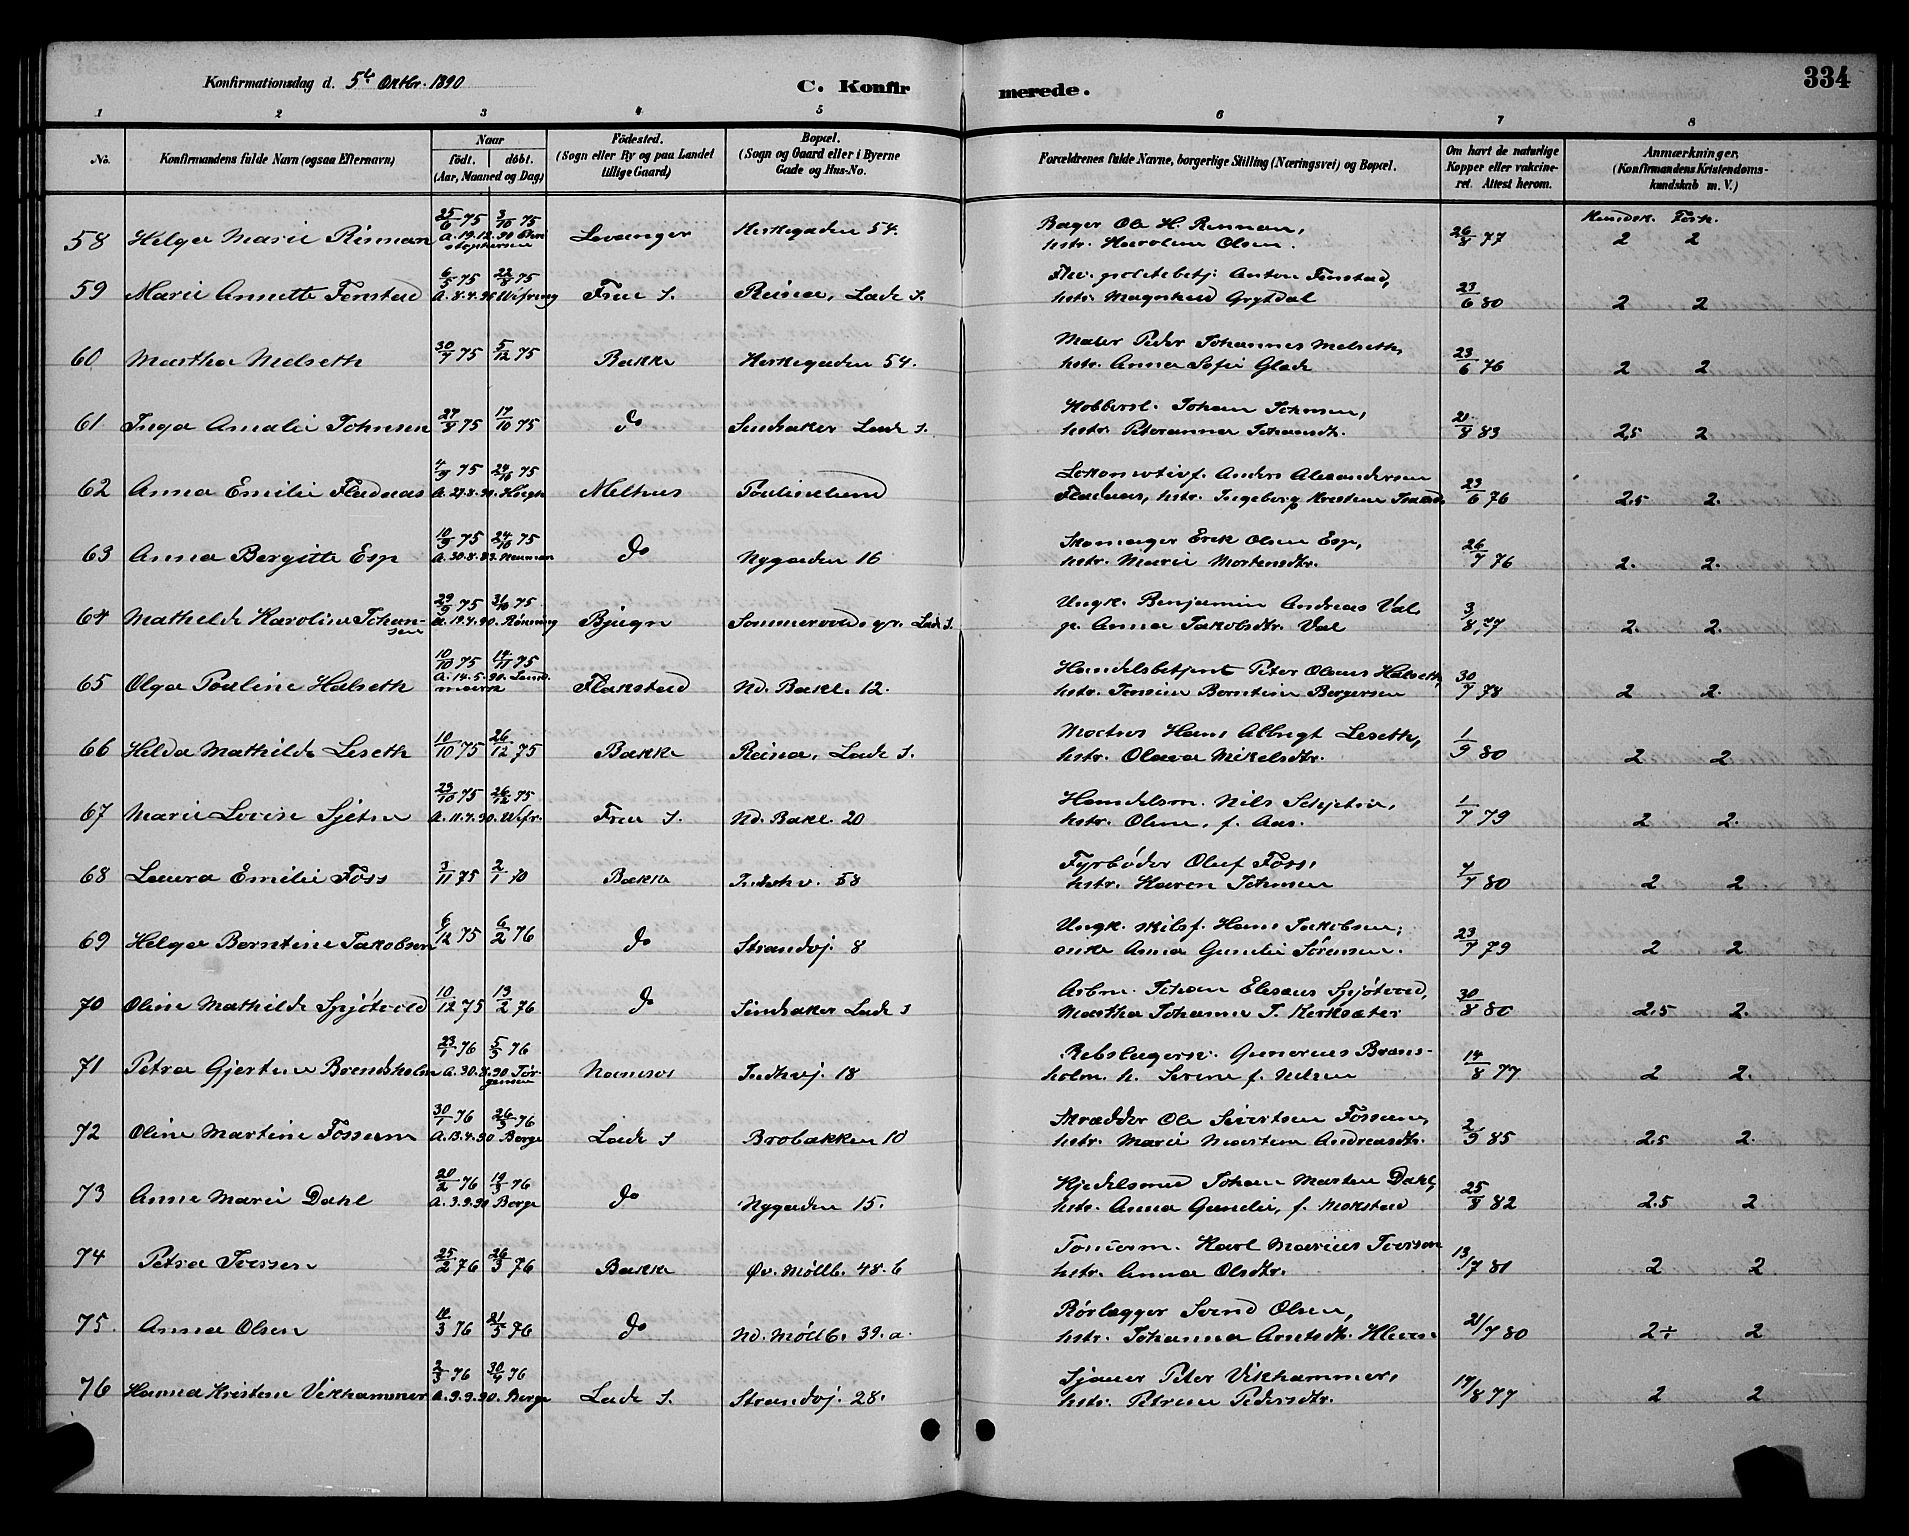 334
Konfirmationsdag d. 5te Oktbr. 1890
C. Konfirmerede.
1 2 3 4 5 6 7 8
No. Konfirmandens fulde Navn (ogsaa Efternavn) Naar født. døbt. (Aar, Maaned og Dag) Fødested. (Sogn eller By og paa Landet tillige Gaard) Bopæl. (Sogn og Gaard eller i Byerne Gade og Hus-No. Forældrenes fulde Navne, borgerlige Stilling (Næringsvei) og Bopæl. Om havt de naturlige Kopper eller vakcineret. Attest herom. Anmærkninger. (Konfirmandens Kristendomskundskab m. V.)
Kundsk. Forh.
58 Helga Marie Rinnan 25/6 75 3/10 75 Levanger Kirkegaden 54. Bager Ole H. Rinnan, hstr. Karoline Olsen. 26/8 77 2 2
59 Marie Annette Fenstad 6/5 75 22/8 75 Frue S. Reina, Lade S. Anton Fenstad, hstr. Magnhild Grytdal 23/6 80 2 2
60 Martha Melseth 30/7 75 5/12 75 Bakke Kirkegaden 54. Maler Peder Johannes Melseth, hstr. Anna Sofie Glade 23/6 76 2 2
61 Inga Amalie Johnsen 27/8 75 17/10 75 do Lade S. Kobbersl. Johan Johnsen, hstr. Peteranna Johansdtr. 21/8 83 2,5 2
62 Anna Emilie Fladnæs 4/9 75 24/10 75 Melhus Paulinelund Lokomotivf. Anders Alexandersen Fladnæs, hstr. Ingeborg Kristine 23/6 76 2,5 2.
63 Anna Bergitte Esp 10/9 75 24/10 75 do Nygaden 16 Skomager Erik Olsen Esp, hstr. Marie Mortensdtr. 26/7 76 2. 2.
64 Mathilde Karoline Johansen 29/9 75 31/10 75 Bjugn Lade S. Ungk. Benjamin Andreas Val, p. Anna Jakobsdtr. Val 3/8 77 2. 2.
65 Olga Pauline Halseth 10/10 75 14/11 75 Flakstad Nd. Bakl. 12. Handelsbetjent Peter Olaus Halseth, hstr. Jensine Berntine Bergersen 30/7 78 2 2.
66 Hilda Mathilde Leseth 10/10 75 26/12 75 Bakke Reina, Lade S. Hans Albrigt Leseth, hstr. Olava Mikelsdtr. 1/9 80 2 2
67 Marie Lovise Sjetne 23/10 75 26/12 75 Frue S. Nd. Bakl 20 Handelsm. Nils Schjetne, hstr. Oline, f. Aas. 1/7 79 2 2.
68 Laura Emilie Foss 3/11 75 Bakke Indhv. 58 Fyrbøder Oluf Foss, hstr. Karen Johnsen 7/7 80 2 2
69 Helga Berntine Jakobsen 6/12 75 6/2 76 do Strandvj. 8 Ungk. skilsf. Hans Jakobsen, enke Anna Gunelie Sørensen. 23/7 79 2 2.
70 Oline Mathilde Spjøtvold 10/12 75 13/2 76 do Lade S Arbm. Johan Eliseus Spjøtvold, Martha Johanna J. Kirksæter 30/8 80 2,5 2.
71 Petra Gjertine Brendsholm 23/1 76 5/3 76 Namsos Indhvj. 18 Rebslagersv. Gunerius Brensholm. h. Serine f. Nilsen 14/8 77 2 2.
72 Oline Martine Fossum 30/1 76 26/3 76 A. 13.4.90 Berge Lade S Brobakken 10 Skrædder Ole Sivertsen Fossum, hstr. Marie Martine Andreasdtr. 2/9 85 2,5 2.
73 Anne Marie Dahl 20/2 76 19/3 76 A. 3.9.90 Berge do Nygaden 15. Kjedelsmed Johan Martin Dahl, hstr. Anna Gunelie, f. Mokstad 25/8 82 2.5 2
74 Petra Iversen 25/2 76 26/3 76 Bakke Øv. Møllb. 48. b Karl Marius Iversen hstr. Anna Olsdtr. 13/7 81 2 2
75. Anna Olsen 3 76 21/5 76 do Nd. Møllb. 39. a. Rørlægger Svend Olsen, hstr. Johanna 21/7 80 2÷ 2
76 Hanna Kristine Vikhammer 2/3 76 30/4 76 A. 9.9.90. Berge Lade S. Strandvj. 28. Sjauer Peter Vikhammer, hstr. Petrine Pedersdtr. 17/8 77 2 2